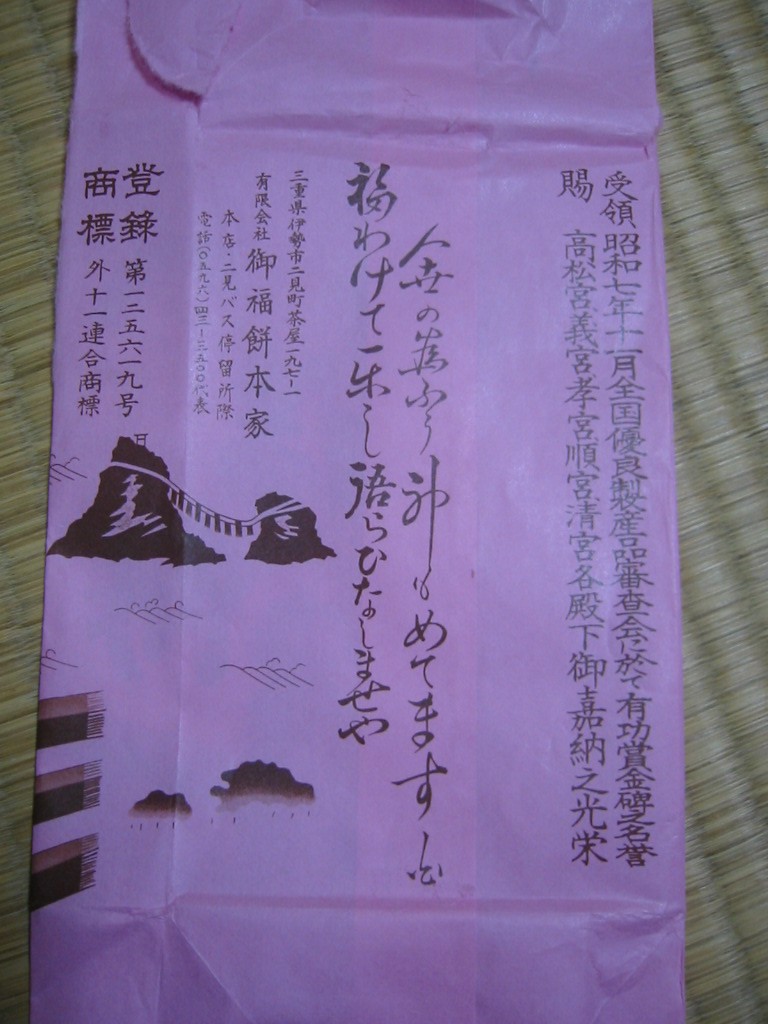 受領 昭和七年十一月全国優良製産品審査会に於て有功賞金碑之名誉
賜 高松宮義宮孝宮順宮清宮各殿下御嘉納之光栄
福わけて 楽し 語らひたのしませや
三重県伊勢市二見町茶屋一九七ー一
有限会社 御福餅本家
本店・二見バス停留所際
電話(〇五九六)四三ー三五〇〇代表
登録 第一三五六一九号
商標 外十一連合商標